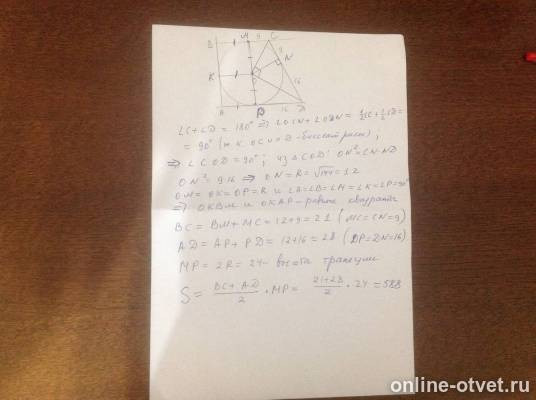 B M 9 C
9
N
K
16
A P 16 D
∠C+∠D = 180° ⇒ ∠OCN+∠ODN = 1/2∠C+1/2∠D =
= 90° (т.к. OC и OD - биссектрисы);
⇒ ∠COD = 90°; из ΔCOD: ON² = CN·ND
ON² = 9·16 ⇒ ON = R = √144 = 12
OM = OK = OP = R и ∠A=∠B=∠M=∠K=∠P=90°
⇒ OKBM и OKAP - равные квадраты
BC = BM+MC = 12+9 = 21 (MC=CN=9)
AD = AP+PD = 12+16 = 28 (DP=DN=16)
MP = 2R = 24 - высота трапеции
S = (BC+AD)/2 · MP = (21+28)/2 · 24 = 588
online-otvet.ru